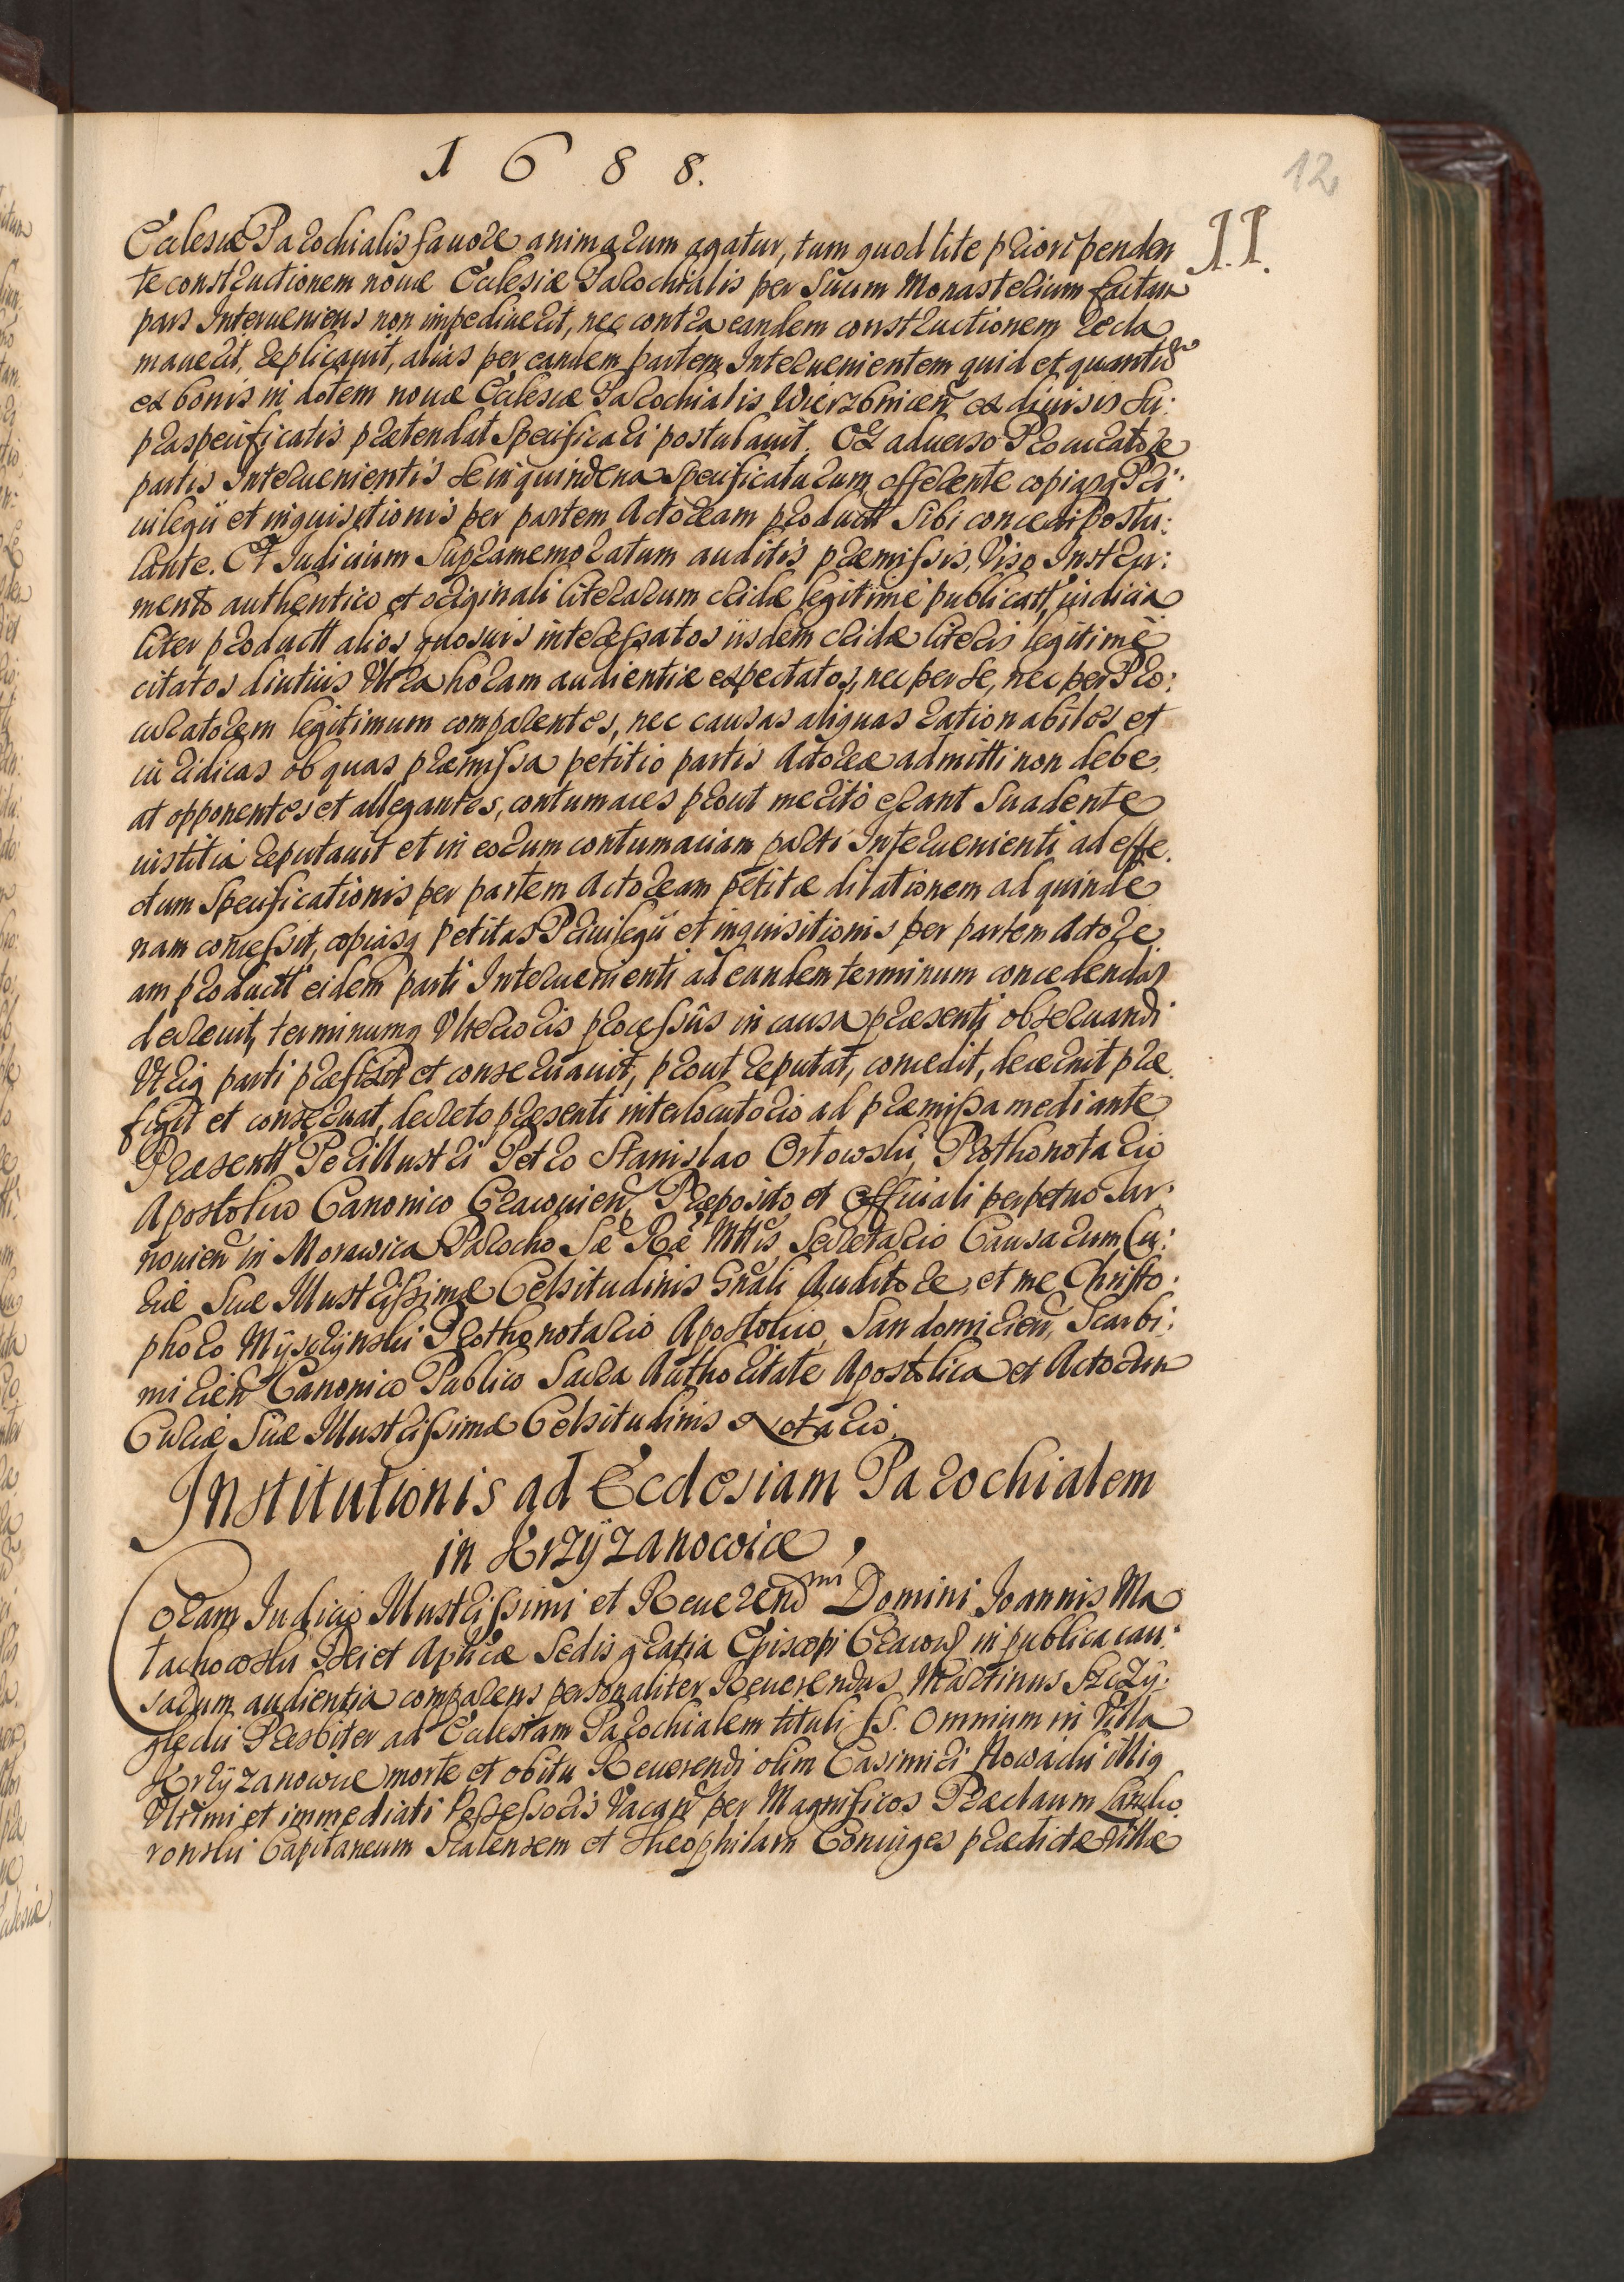 1688.
12
11.
Ecclesiæ Parochialis fauore animarum agatur, tum quod lite priori penden
te constructionem nouæ Ecclesiæ Parochialis per suum Monasterium factam
pars Interueniens non impediuerit, nec contra eandem constructionem recla
mauerit, replicauit, alias per eandem partem Interuenientem quid et quantu
ex bonis in dotem nouæ Ecclesiæ Parochialis Wierzbnicen ex diuisis su:
praspecificatis prætendat specificari postulauit. Ex aduerso Procuratore
partis Interuenientis se in quindena specificaturum offerente copiasq Pri:
uilegii et inquisitionis per partem Actoream productt sibi concedi postu:
lante. Et Iudicium supramemoratum auditis præmissis, Viso Instru:
mento authentico et originali literarum cridæ legitimè publicatt, iudicia
liter productt alios quosuis interessatos iisdem cridæ literis legitimè
citatos diutiùs Vltra horam audientiæ expectatos, nec per se, nec per Pro:
curatorem legitimum comparentes, nec causas aliquas rationabiles et
iuridicas ob quas præmissa petitio partis Actoreæ admitti non debe,
at opponentes et allegantes, contumaces prout meritò erant suadente
iustitia reputauit et in eorum contumaciam parti Interuenienti ad effe,
ctum specificationis per partem Actoream petitæ dilationem ad quinde
nam concessit, copiasq petitas Priuilegii et inquisitionis per partem Actore,
am productt eidem parti Interuenienti ad eundem terminum concedendas
decreuit, terminumq Vlterioris processûs in causa præsenti obseruandi
Vtriq parti præfixit et conseruauit, prout reputat, concedit, decernit præ
figit et conseruat, decreto præsenti interlocutorio ad præmissa mediante
Præsentt Perillustri Petro Stanislao Orłowski, Prothonotario
Apostolico Canonico Cracouien, Præposito et Officiali perpetuo Tar:
nouien in Morawica Parocho Sæ Ræ Mttis Secretario Causarum Cu:
riæ Suæ Illustrissimæ Celsitudinis Gnali Auditore, et me Christo:
phoro Mysczynski Prothonotario Apostolico, Sandomirien, Scarbi:
mirien Canonico Publico Sacra Authoritate Apostolica et Actorum
Curiæ Suæ Illustrissimæ Celsitudinis Notario.
Institutionis ad Ecclesiam Parochialem
in Krzyzanowice,
Coram Iudicio Illustrissimi et Reuerend mi Domini Ioannis Ma
łachowski Dei et Aplicæ Sedis gratia Episcopi Cracou in publica cau:
sarum audientia comparens personaliter Reuerendus Martinus
Præsbiter ad Ecclesiam Parochialem tituli SS. Omnium in Villa
Krzyzanowice morte et obitu Reuerendi olim Casimiri Nowacki illiq
Vltimi et immediati Possessoris Vacan per Magnificos Præclaum Lancko
ronski Capitaneum Scalensem et Theophilam Coniuges prædictæ Villæ